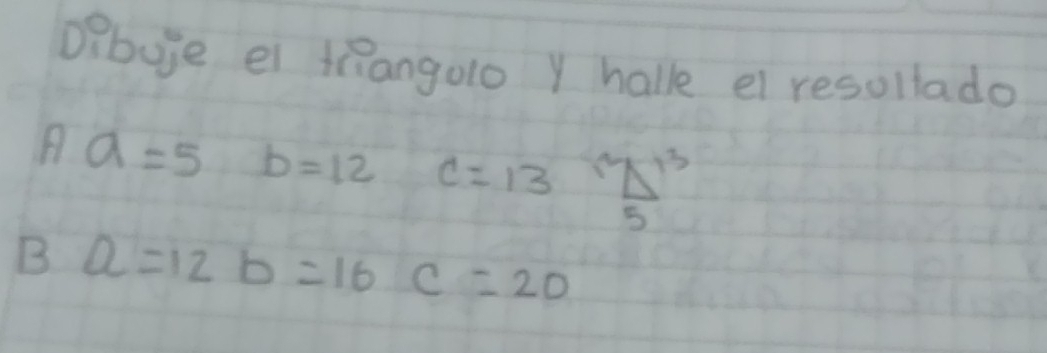 Dibuje el triangulo y halle el resultado
A a = 5 b = 12 c = 13 12 13
5
B a = 12 b = 16 c = 20